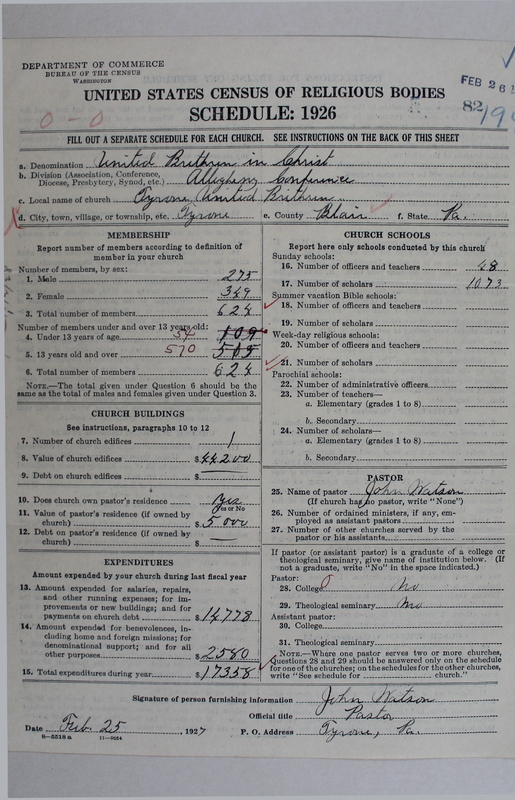 DEPARTMENT OF COMMERCE
BUREAU OF THE CENSUS
WASHINGTON
FEB 26
UNITED STATES CENSUS OF RELIGIOUS BODIES
SCHEDULE: 1926
0-0
FILL OUT A SEPARATE SCHEDULE FOR EACH CHURCH. SEE INSTRUCTIONS ON THE BACK OF THIS SHEET
a. Denomination United Brethren in Christ
b. Division (Association, Conference, Diocese, Presbytery, Synod, etc.) Allegheny Conference
c. Local name of church Tyrone United Brethren
d. City, town, village, or township, etc. Tyrone e. County Blair f. State Pa.
MEMBERSHIP
Report number of members according to definition of member in your church
Number of members, by sex:
1. Male 275
2. Female 349
3. Total number of members 624
Number of members under and over 13 years old:
4. Under 13 years of age 54 109
5. 13 years old and over 570 515
6. Total number of members 624
NOTE.—The total given under Question 6 should be the same as the total of males and females given under Question 3.
CHURCH BUILDINGS
See instructions, paragraphs 10 to 12
7. Number of church edifices 1
8. Value of church edifices $44200
9. Debt on church edifices $
10. Does church own pastor's residence Yes
Yes or No
11. Value of pastor's residence (if owned by church) $5000
12. Debt on pastor's residence (if owned by church) $
EXPENDITURES
Amount expended by your church during last fiscal year
13. Amount expended for salaries, repairs, and other running expenses; for improvements or new buildings; and for payments on church debt $14778
14. Amount expended for benevolences, including home and foreign missions; for denominational support; and for all other purposes $2580
15. Total expenditures during year $17358
CHURCH SCHOOLS
Report here only schools conducted by this church
Sunday schools:
16. Number of officers and teachers 48
17. Number of scholars 1073
Summer vacation Bible schools:
18. Number of officers and teachers
19. Number of scholars
Week-day religious schools:
20. Number of officers and teachers
21. Number of scholars
Parochial schools:
22. Number of administrative officers
23. Number of teachers—
a. Elementary (grades 1 to 8)
b. Secondary
24. Number of scholars—
a. Elementary (grades 1 to 8)
b. Secondary
PASTOR
25. Name of pastor John Watson
(If church has no pastor, write "None")
26. Number of ordained ministers, if any, employed as assistant pastors
27. Number of other churches served by the pastor or his assistants
If pastor (or assistant pastor) is a graduate of a college or theological seminary, give name of institution below. (If not a graduate, write "No" in the space indicated.)
Pastor:
28. College No
29. Theological seminary No
Assistant pastor:
30. College
31. Theological seminary
NOTE.—Where one pastor serves two or more churches, Questions 28 and 29 should be answered only on the schedule for one of the churches; on the schedules for the other churches, write "See schedule for church."
Signature of person furnishing information John Watson
Official title Pastor
Date Feb. 25, 1927 P. O. Address Tyrone, Pa.
8-5518 a 11-9554